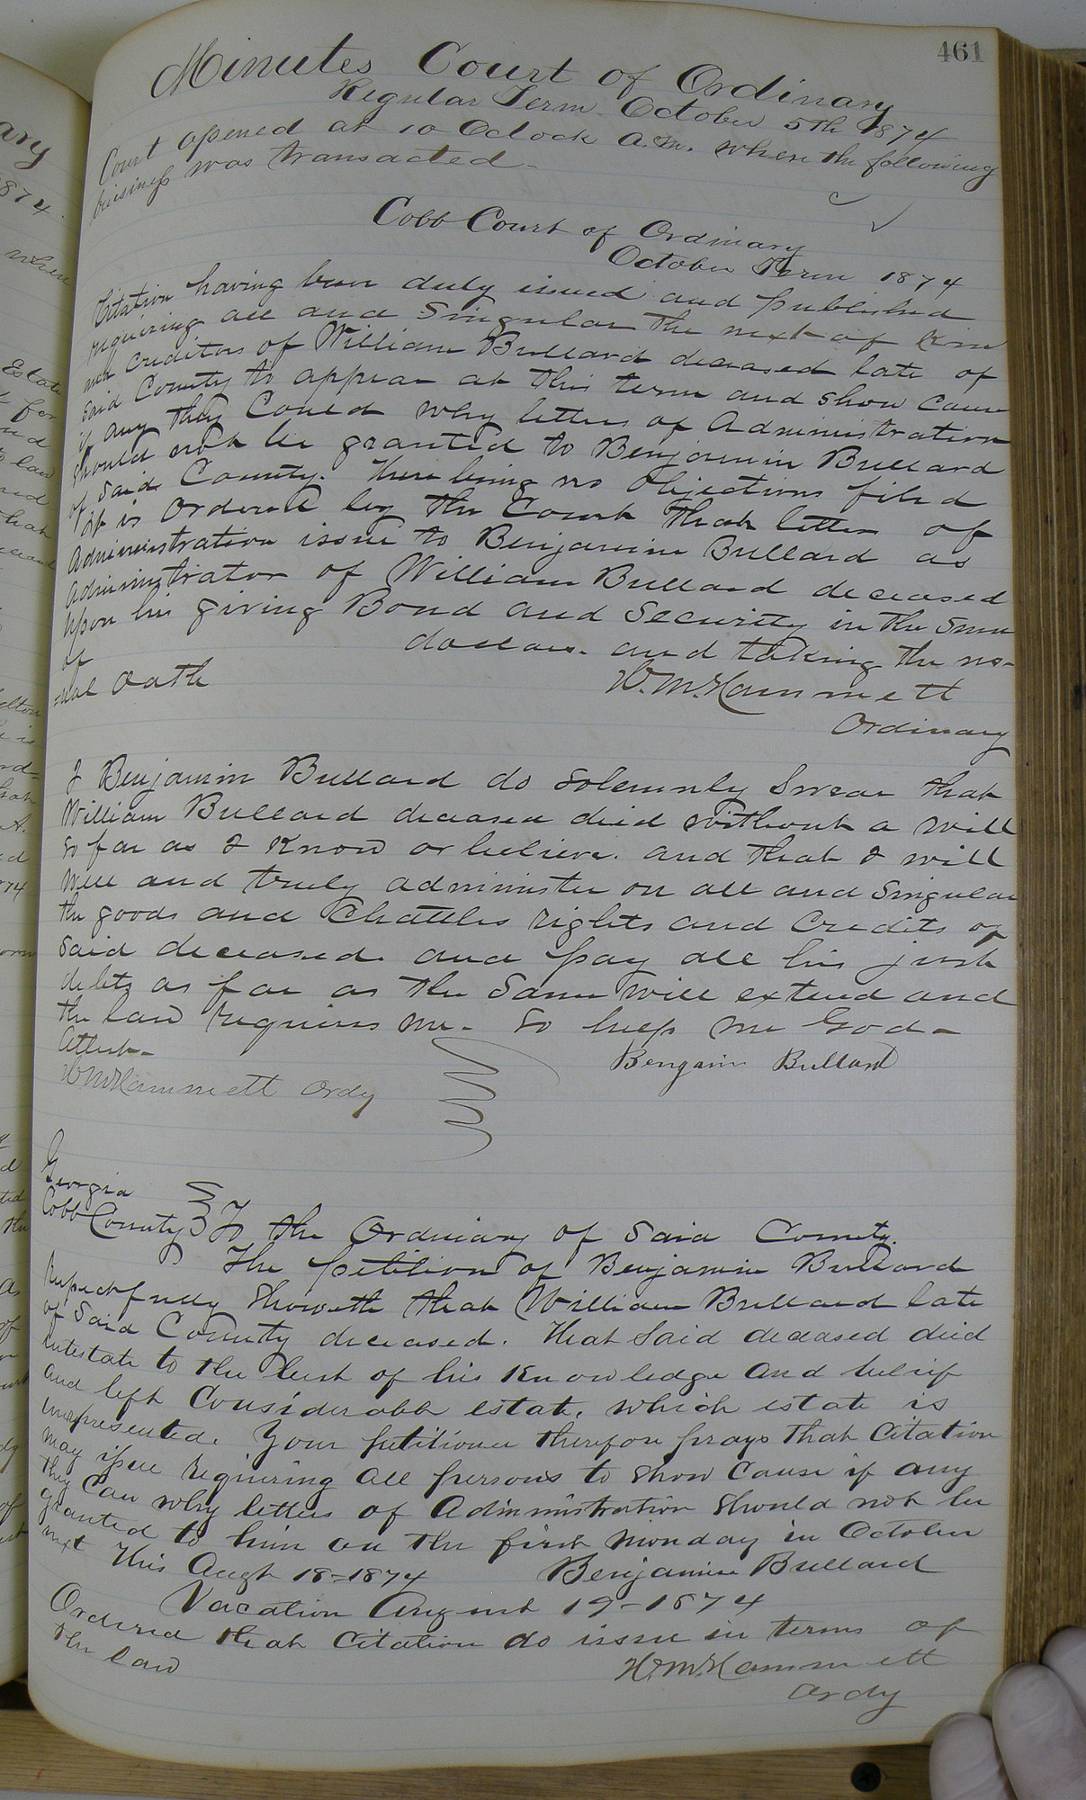 461
Minutes Court of Ordinary
Regular Term October 5th 1874
Court opened at 10 Oclock a.m. when the following
business was transacted -
Cobb Court of Ordinary
October Term 1874
Citation having been duly issued and published
requiring all and Singular the next of Kin
and Creditors of William Bullard deceased late of
said County to appear at this term and show Cause
if any they Could why letters of Administration
should not be granted to Benjamin Bullard
of said County. There being no Objections filed
it is Ordered by the Court that letters of
Administration issue to Benjamin Bullard as
Administrator of William Bullard deceased
Upon his giving Bond and Security in the Sum
of dollars. and taking the us-
=ual Oath
W.M. Hammett
Ordinary
I Benjamin Bullard do Solemnly Swear that
William Bullard deceased died without a will
So far as I Know or believe. and that I will
Well and truly administer on all and Singular
the goods and Chattles rights and Credits of
said deceased. and pay all his just
debts as far as the Same will extend and
the law requires me. So help me God -
Attest.
Bengain Bullard
W M Hammett Ordy
Georgia
Cobb County To the Ordinary of Said County.
The petition of Benjamin Bullard
Respectfully Showeth that William Bullard late
of Said County deceased. that Said deceased died
intestate to the best of his Knowledge and belief
and left Considerable estate. which estate is
unrepresented. Your petitioner therefore prays that Citation
may issue requiring all persons to show Cause if any
they Can why letters of Administration should not be
granted to him on the first Monday in October
next This Augt 18-1874 Benjamin Bullard
Vacation August 19-1874
Ordered that Citation do issue in terms of
the law
W.M. Hammett
Ordy